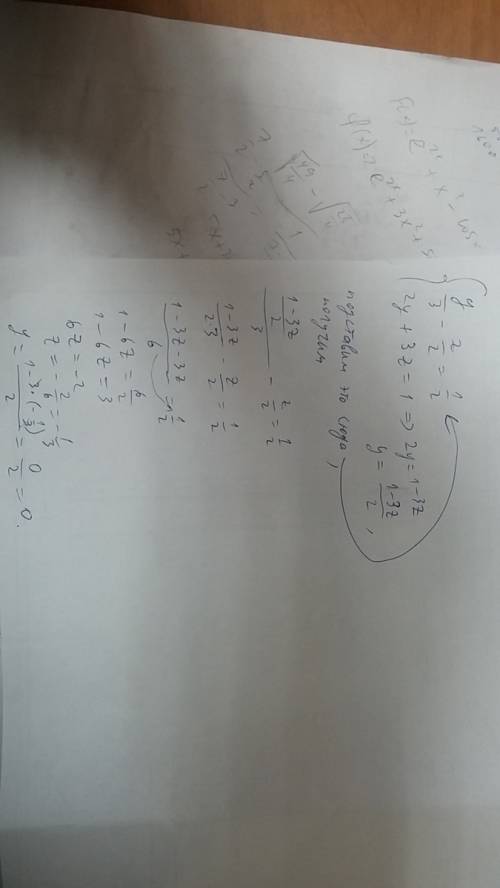 y/3 - z/2 = 1/2
2y + 3z = 1 => 2y = 1-3z
y = (1-3z)/2,
подставим это сюда,
получим
((1-3z)/2)/3 - z/2 = 1/2
(1-3z)/(2·3) - z/2 = 1/2
(1-3z-3z)/6 = 1/2
1-6z = 6/2
1-6z = 3
6z = -2
z = -2/6 = -1/3
y = (1-3·(-1/3))/2 = 0/2 = 0.
φ(x) = e^{2x} + 3x² + 5